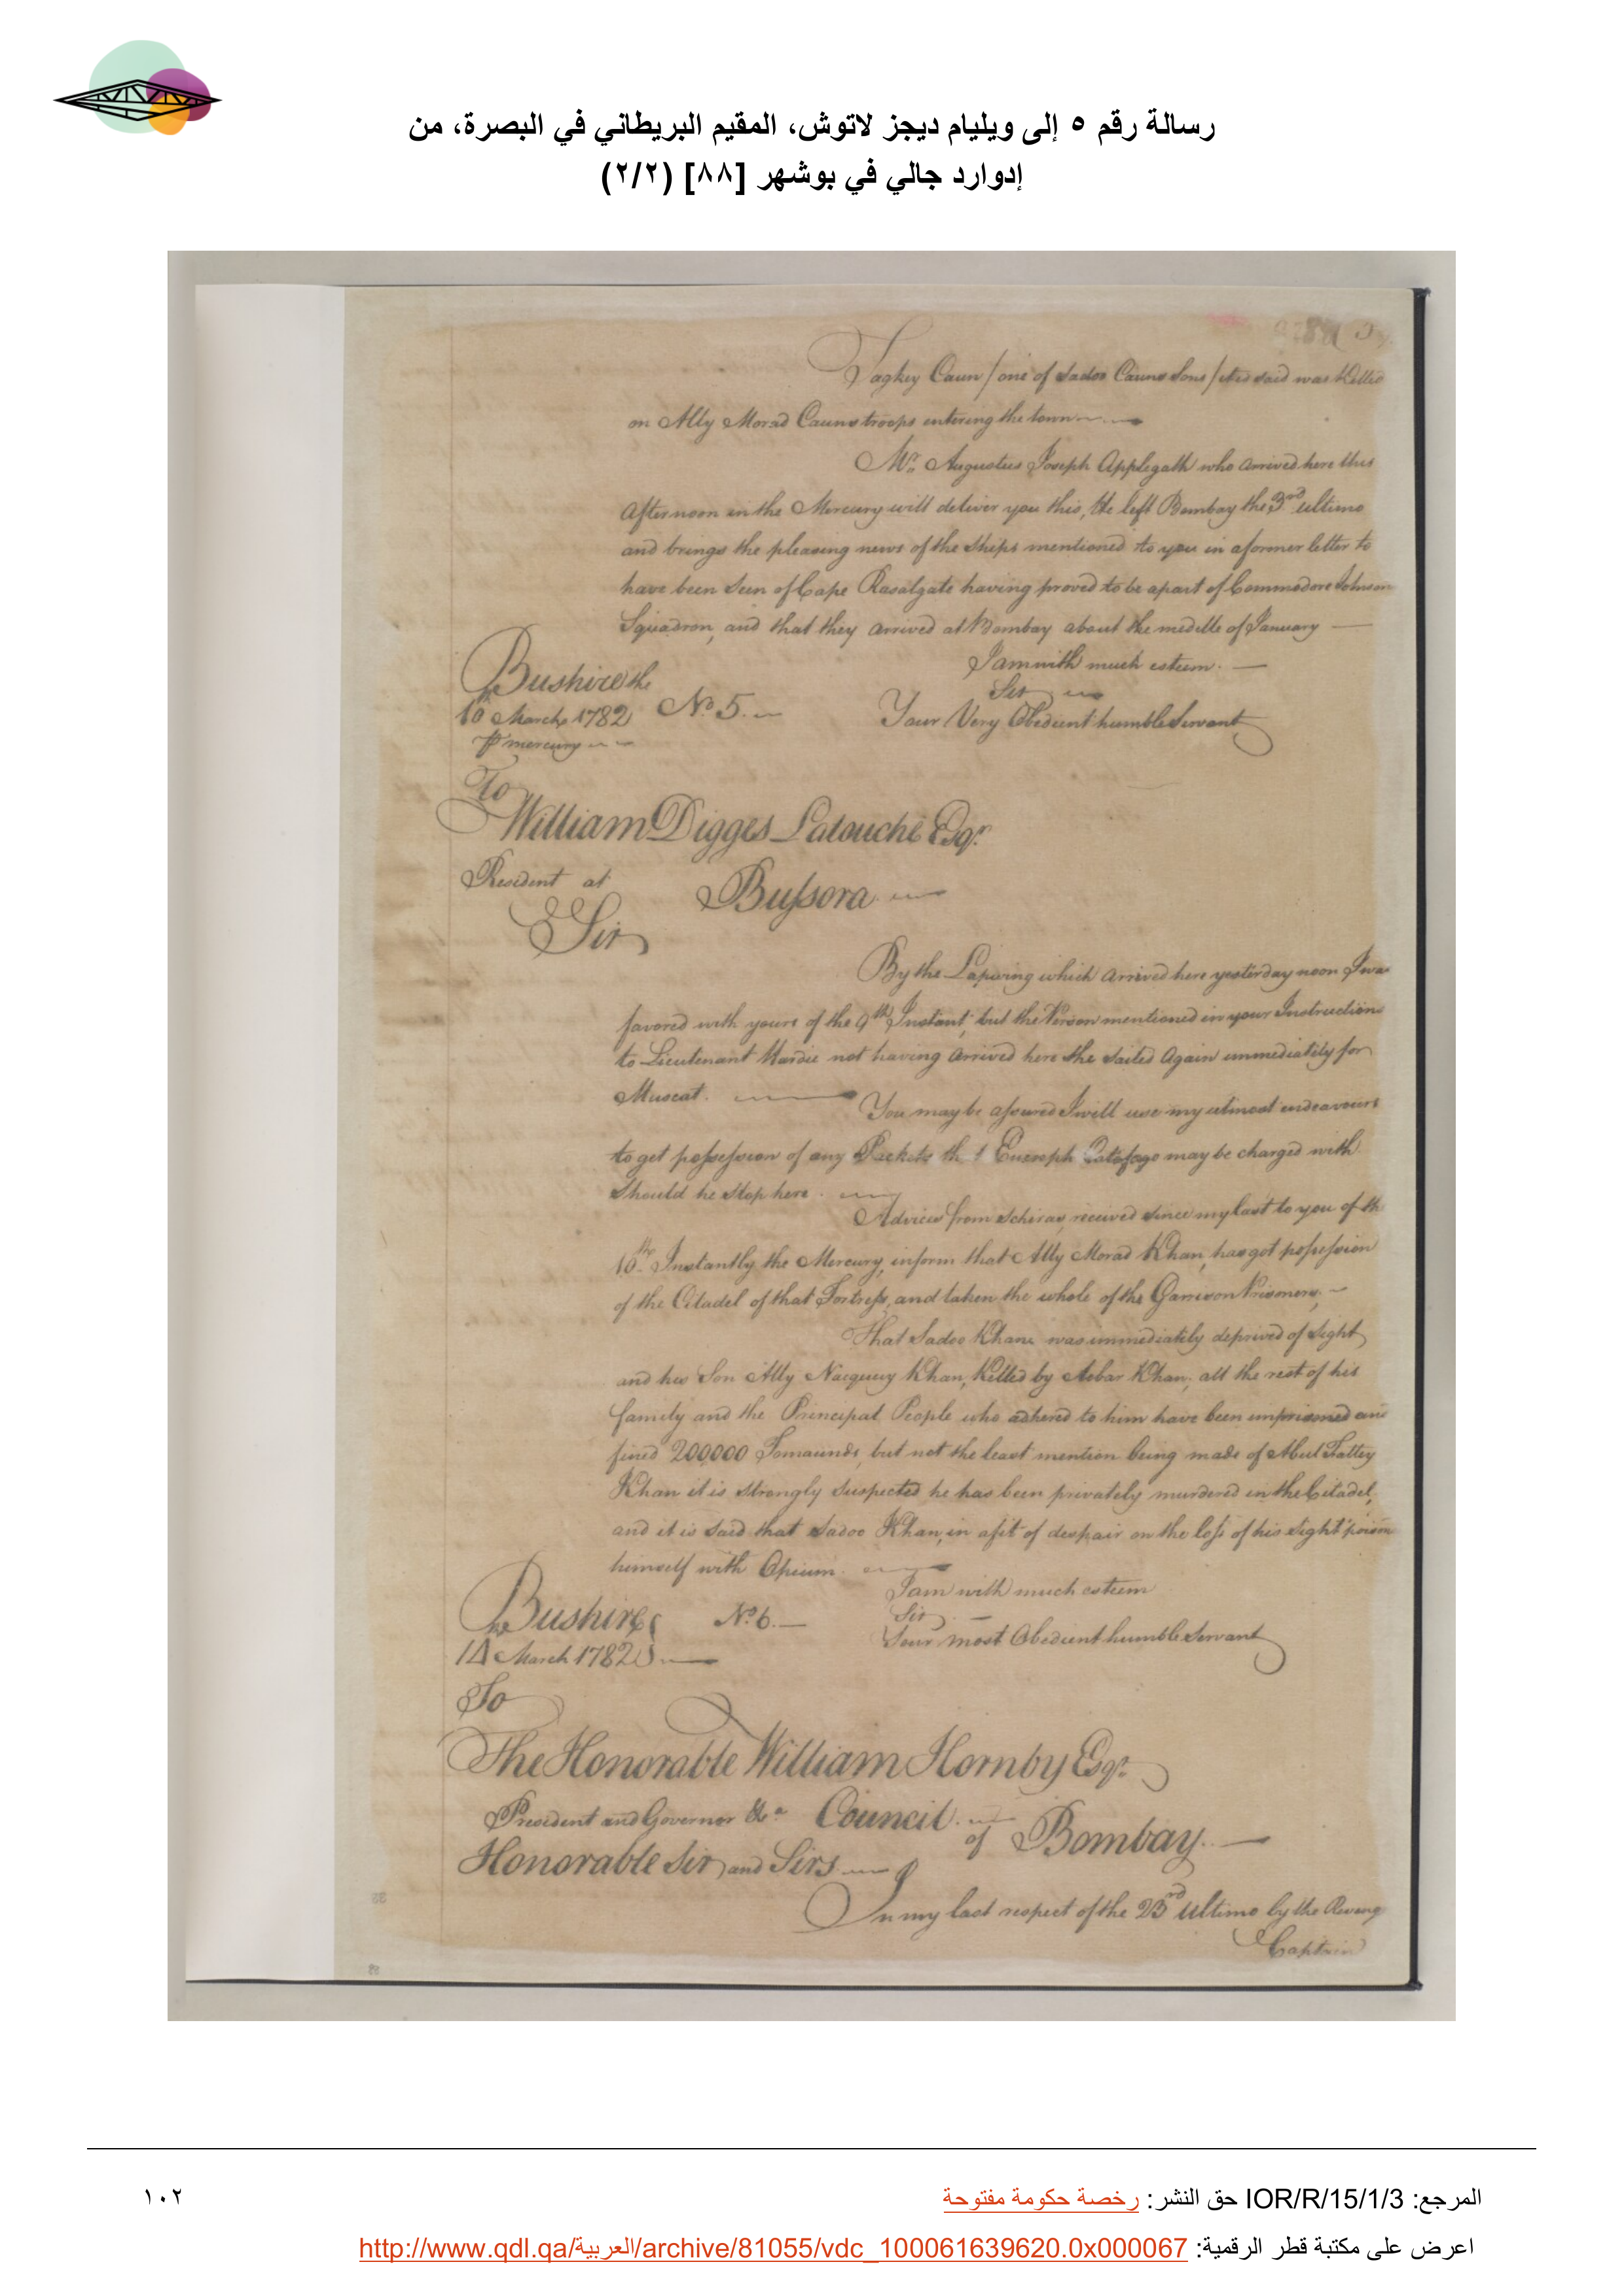 رسالة رقم ٥ إلى ويليام ديجز لاتوش، المقيم البريطاني في البصرة، من
إدوارد جالي في بوشهر [٨٨] (٢/٢)
Tagkey Caun / one of Sadoo Cauns Sons / it is said was killed
on Ally Morad Cauns troops entering the town
Mr. Augustus Joseph Applegath who arrived here this
afternoon in the Mercury will deliver you this, He left Bombay the 3rd ultimo
and brings the pleasing news of the ships mentioned to you in a former letter to
have been seen of Cape Rasalgate having proved to be a part of Commodore Johnson
Squadron, and that they arrived at Bombay about the middle of January
I am with much esteem.
Bushire the
Sir
10th March 1782 No. 5.
Your Very Obedient humble Servant
P mercury
To
William Digges Latouche Esqr.
Resident at Bussora
Sir
By the Lapwing which arrived here yesterday noon I was
favored with yours of the 9th Instant, but the Person mentioned in your Instructions
to Lieutenant Hardie not having arrived here she sailed again immediately for
Muscat.
You may be assured I will use my utmost endeavours
to get possession of any Packets th t Cuesoph Catafago may be charged with
should he stop here.
Advices from Schiras, received since my last to you of th
10th. Instantly the Mercury, inform that Ally Morad Khan, has got possession
of the Citadel of that Fortress, and taken the whole of the Garrison Prisoners;
That Sadoo Khan was immediately deprived of Sight
and his Son Ally Nacquey Khan, Killed by Acbar Khan; all the rest of his
family and the Principal People who adhered to him have been imprisoned and
fined 200000 Tomaunds, but not the least mention being made of Abul Fattey
Khan it is strongly suspected he has been privately murdered in the Citadel,
and it is said that Sadoo Khan, in a fit of despair on the loss of his Sight poison
himself with Opium.
I am with much esteem
Bushire No. 6.
Sir
the
14 March 1782
Your most Obedient humble Servant
To
The Honorable William Hornby Esqr.
President and Governor &a Council
of Bombay.
Honorable Sir and Sirs
In my last respect of the 23rd ultimo by the Reveng
Captain
المرجع: IOR/R/15/1/3 حق النشر: رخصة حكومة مفتوحة
١٠٢
اعرض على مكتبة قطر الرقمية: http://www.qdl.qa/العربية/archive/81055/vdc_100061639620.0x000067